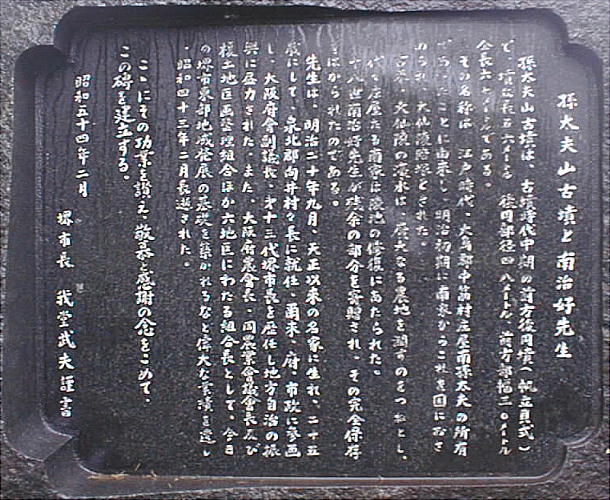 孫太夫山古墳と南治好先生
孫太夫山古墳は、古墳時代中期の前方後円墳(帆立貝式)
で、墳丘長五六メートル 後円部径四八メートル 前方部幅三〇メートル
全長六七メートルである。
その名称は、江戸時代、大鳥郡中筋村庄屋南孫太夫の所有
であったことに由来し、明治初期に南家からこれを国におさ
められ、大仙陵陪塚とされた。
古来、大仙陵の濠水は、広大なる農地を潤すのを つねとし、
代々庄屋たる南家は陵池の修復にあたられた。
十八世南治好先生が残余の部分を寄贈され、その完全保存
をはかられたのである。
先生は、明治二十年九月、天正以来の名家に生れ、二十五
歳にして、泉北郡向井村々長に就任、爾来、府、市政に参画
し、大阪府会副議長、第十三代堺市長を歴任し地方自治の振
興に尽力された。また、大阪府農会長、同農業会議会長及び
榎土地区画整理組合ほか六地区にわたる組合長として、今日
の堺市東部地域発展の基礎を築かれるなど偉大な業績を遺し
、昭和四十三年二月長逝された。
ここにその功業を讃え、敬恭と感謝の念をこめて、
この碑を建立する。
昭和五十四年二月
堺市長 我堂武夫謹書